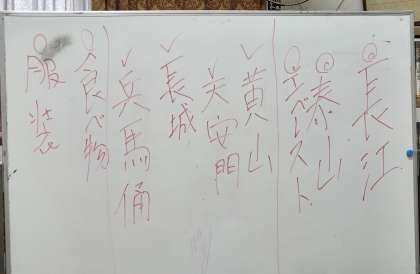 長江
泰山
エベレスト
✓黄山
天安門
✓長城
✓兵馬俑
食べ物
服装